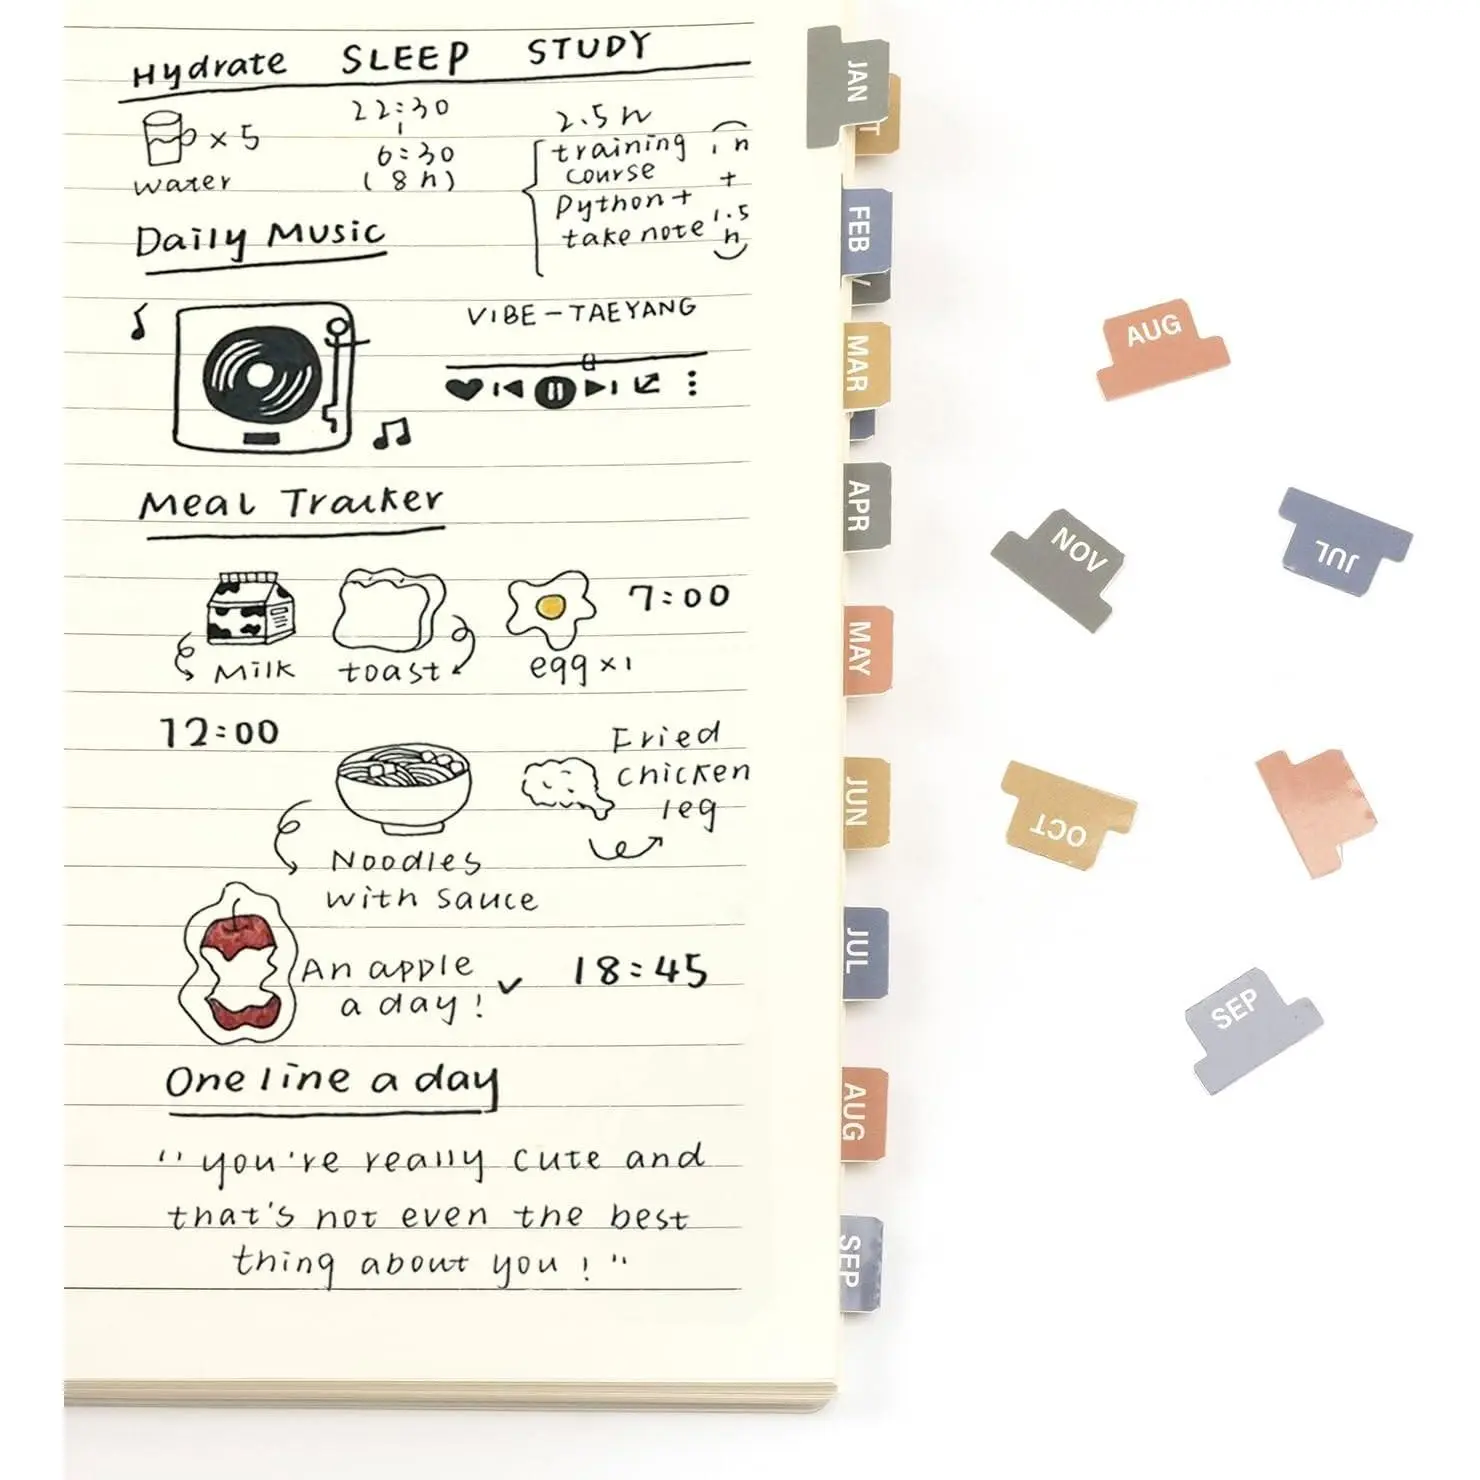 Hydrate SLEEP STUDY
x 5
water
22:30
6:30
(8h)
2.5h
training
course
1h
+
Python +
take note
1.5
h
Daily Music
VIBE – TAEYANG
Meal Tracker
Milk
toast
egg x1
7:00
12:00
Noodles
with sauce
Fried
chicken
leg
An apple
a day!
18:45
One line a day
"you're really cute and
that's not even the best
thing about you!"
JAN
FEB
MAR
APR
MAY
JUN
JUL
AUG
SEP
AUG
NOV
JUL
OCT
SEP